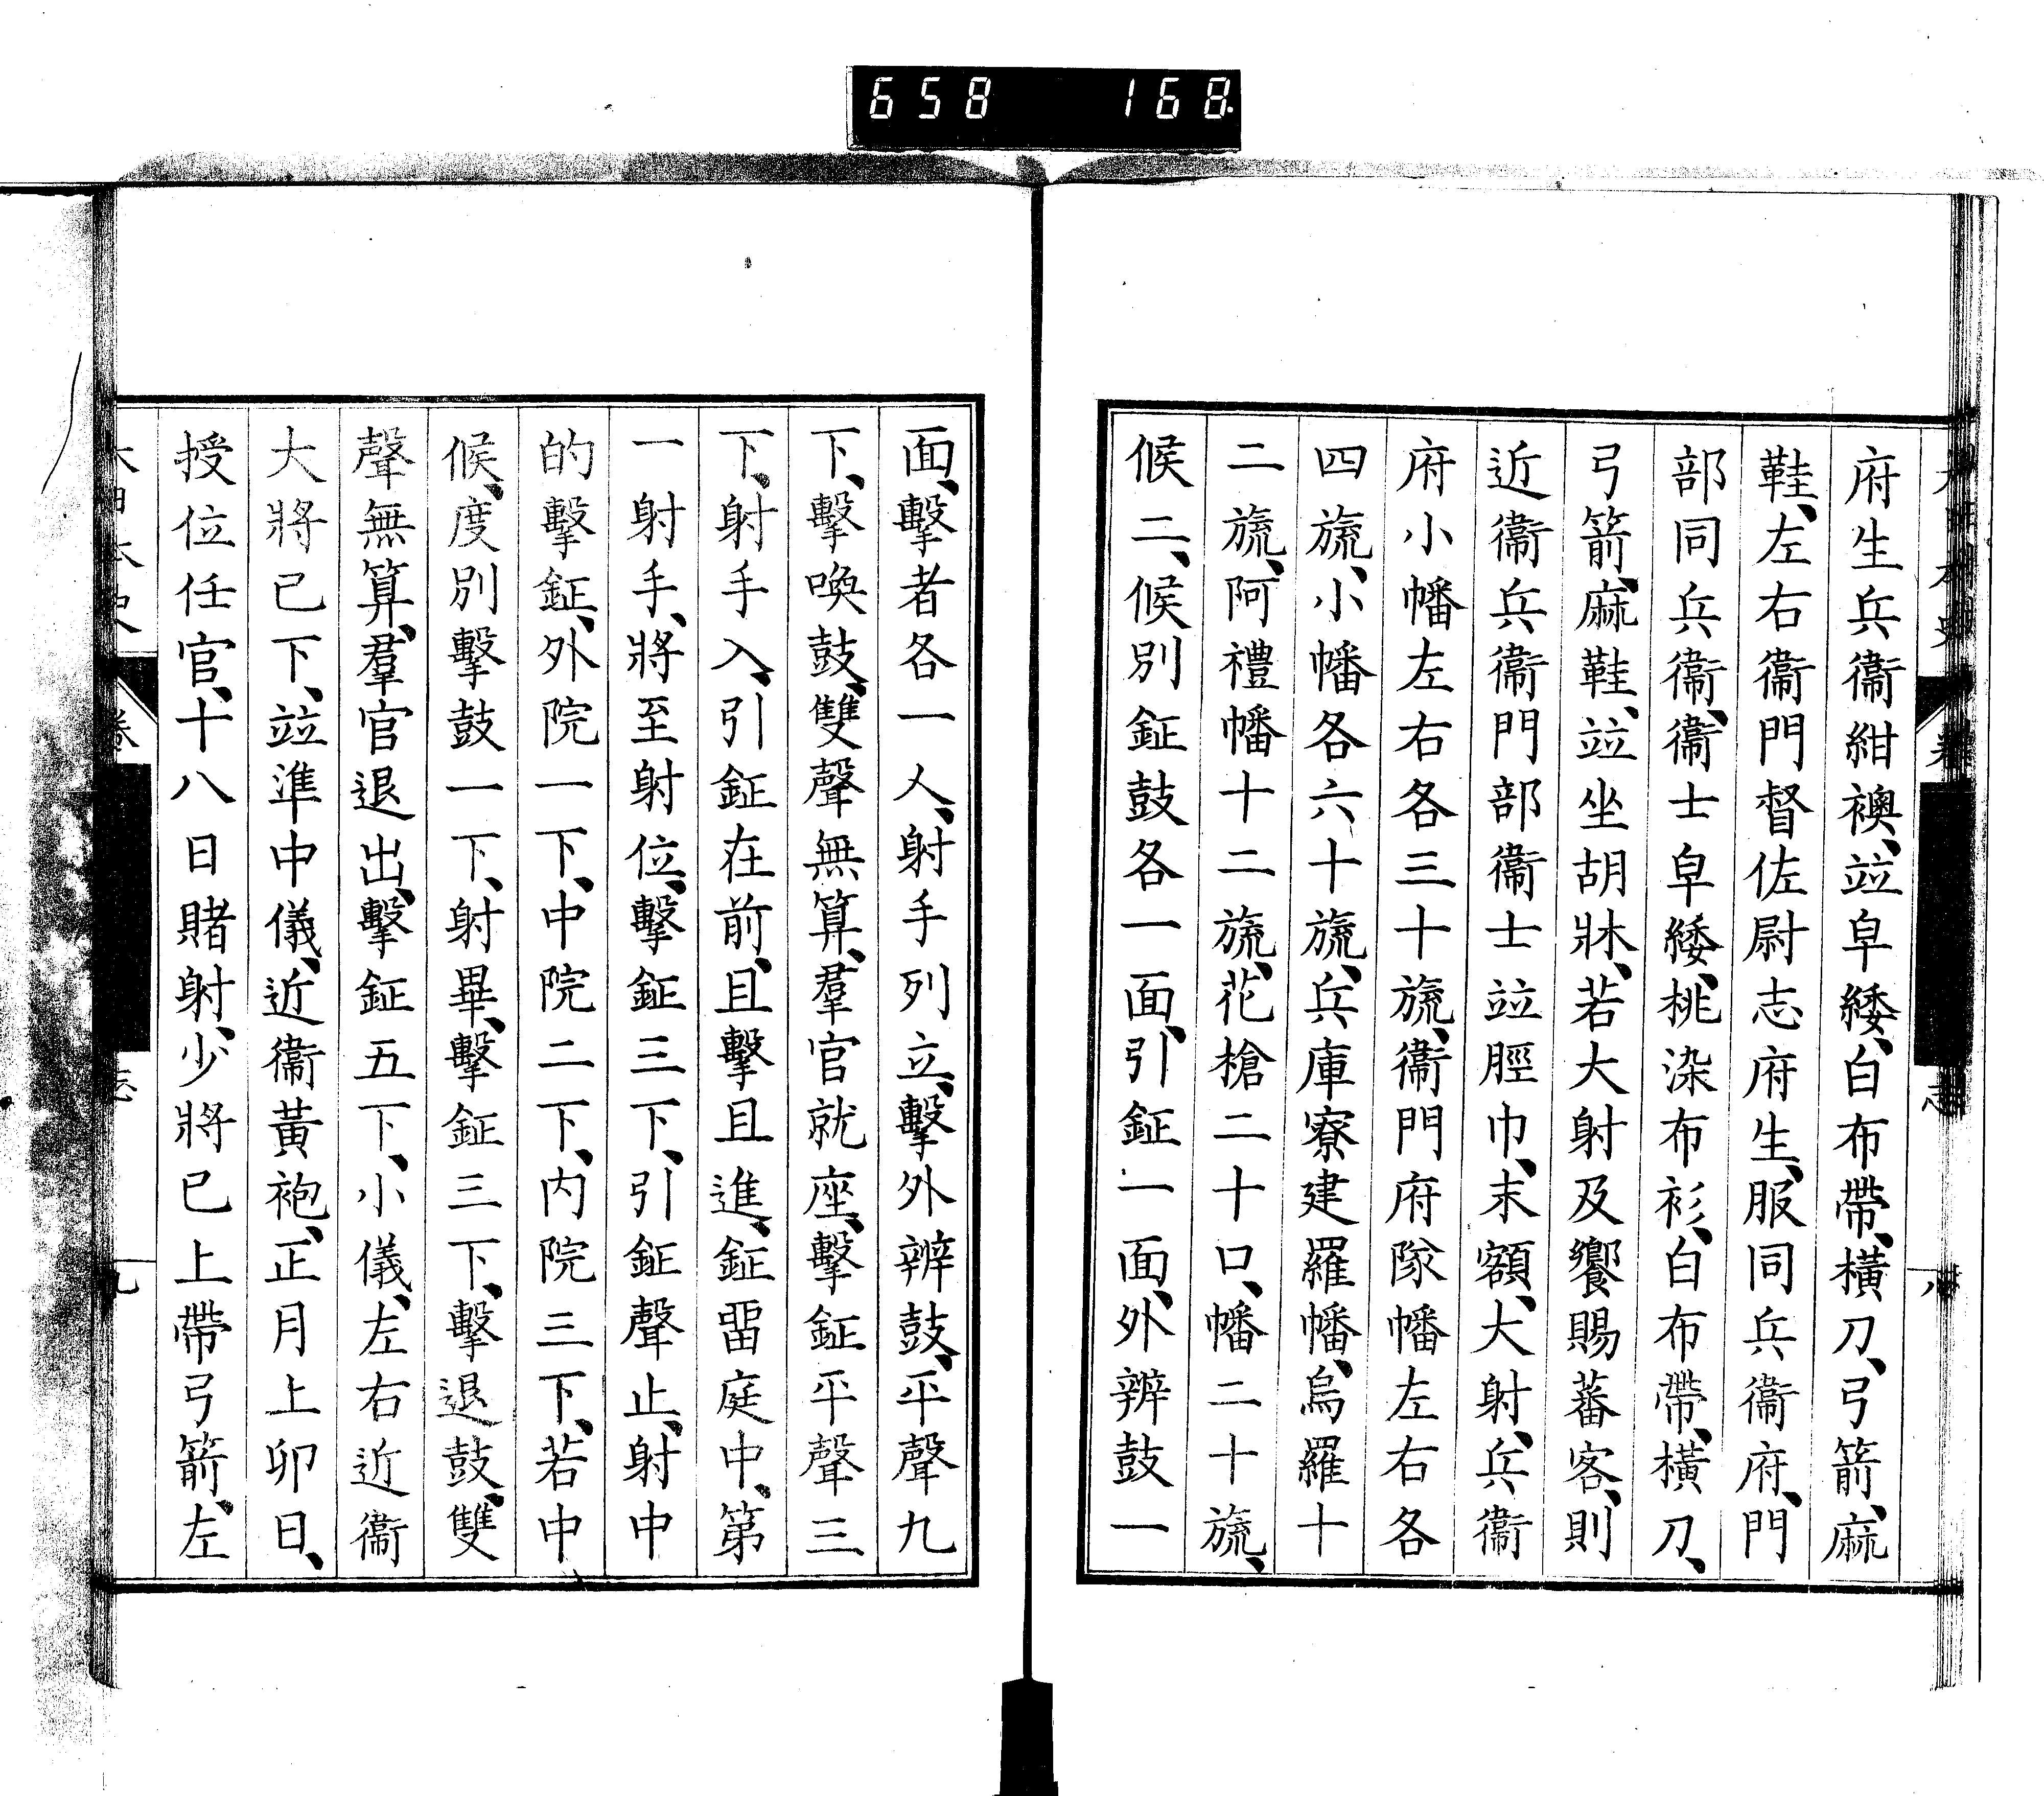 658 168
府生兵衞紺襖、竝皁緌、白布帶、橫刀、弓箭、麻
鞋、左右衞門督佐尉志府生、服同兵衞府、門
部同兵衞、衞士皁緌、桃染布衫、白布帶、橫刀、
弓箭、麻鞋、竝坐胡牀、若大射及饗賜蕃客、則
近衞兵衞門部衞士竝脛巾、末額、大射、兵衞
府小幡左右各三十旒、衞門府隊幡左右各
四旒、小幡各六十旒、兵庫寮建羅幡、烏羅十
二旒、阿禮幡十二旒、花槍二十口、幡二十旒、
候二、候別鉦鼓各一面、引鉦一面、外辨鼓一
面、擊者各一人、射手列立、擊外辨鼓、平聲九
下、擊喚鼓、雙聲無算、羣官就座、擊鉦平聲三
下、射手入、引鉦在前、且擊且進、鉦畱庭中、第
一射手、將至射位、擊鉦三下、引鉦聲止、射中
的擊鉦、外院一下、中院二下、内院三下、若中
候、度別擊鼓一下、射畢、擊鉦三下、擊退鼓、雙
聲無算、羣官退出、擊鉦五下、小儀、左右近衞
大將已下、竝準中儀、近衞黃袍、正月上卯日、
授位任官、十八日賭射、少將已上帶弓箭、左